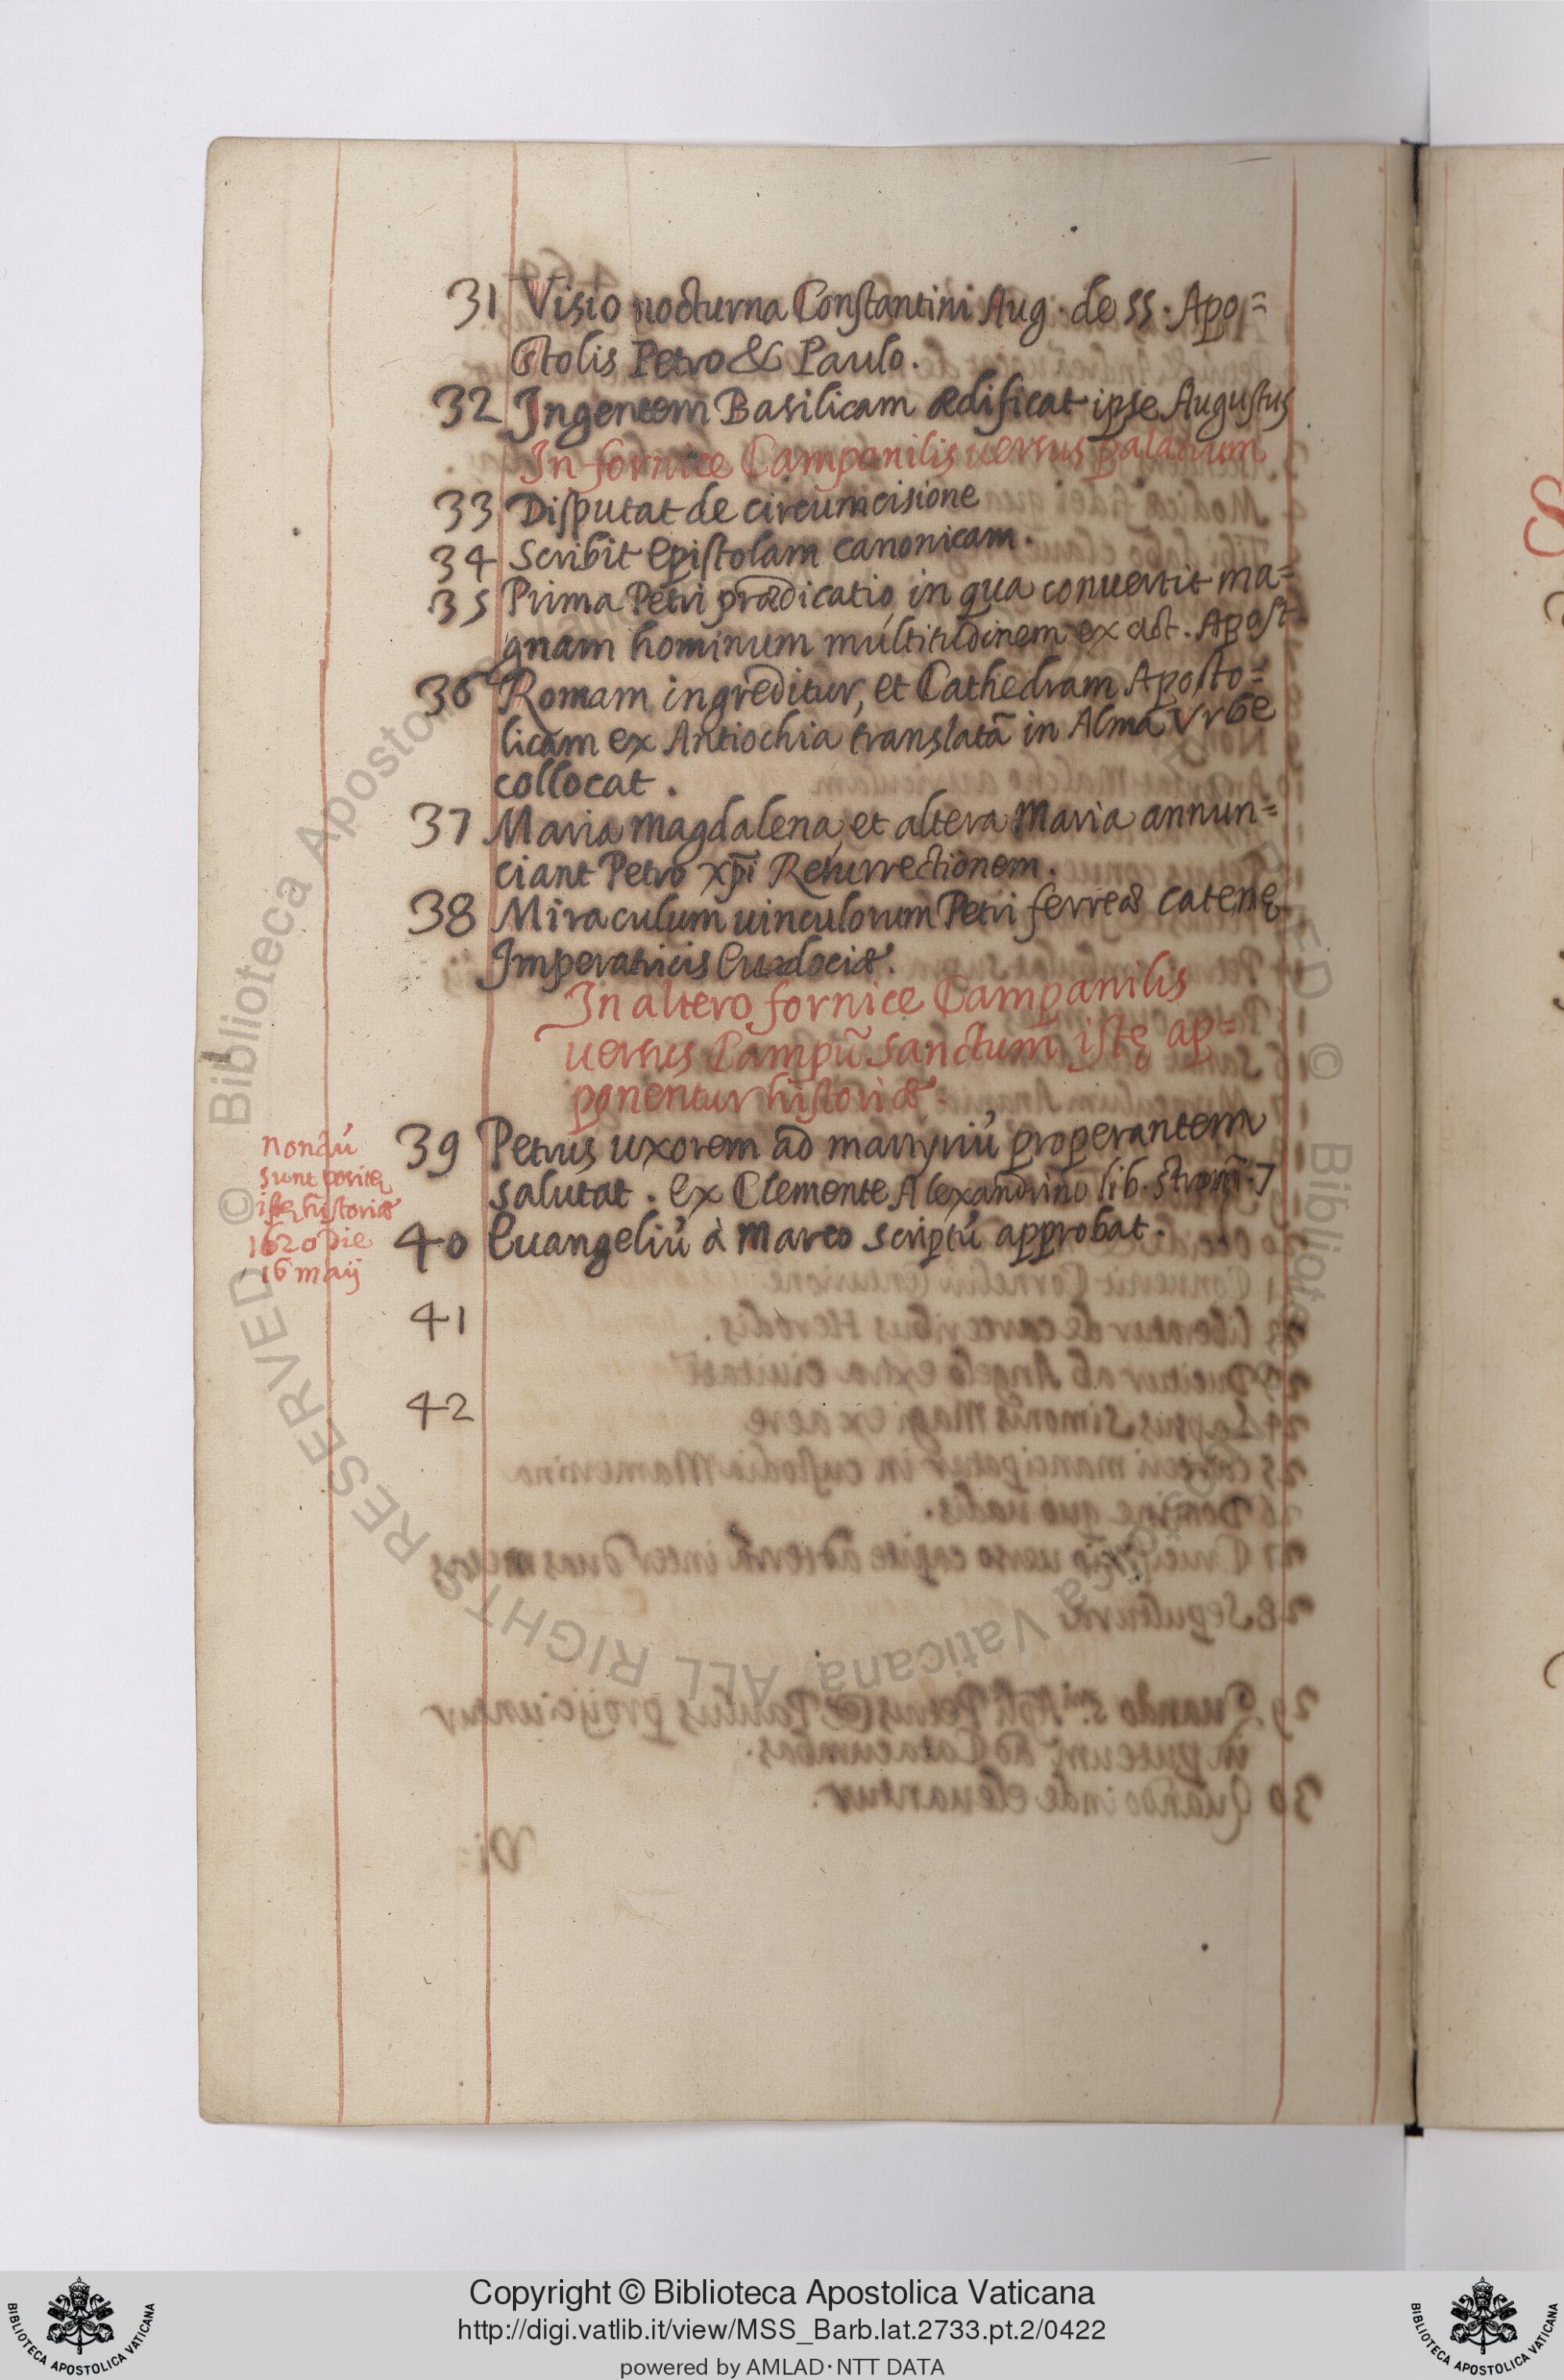 31 Visio nocturna Constantini Aug. de SS. Apo=
stolis Petro & Paulo.
32 Ingentem Basilicam ædificat ipse Augustus
In fornice Campanilis uersus palatium
33 Disputat de circumcisione
34 Scribit epistolam canonicam.
35 Prima Petri prædicatio in qua conuertit ma=
gnam hominum multitudinem ex act. Apost.
36 Romam ingreditur, et Cathedram Aposto=
licam ex Antiochia translatã in Alma Vrbe
collocat.
37 Maria Magdalena, et altera Maria annun=
ciant Petro xp̃i Resurrectionem.
38 Miraculum uinculorum Petri ferreæ catenę
Imperatricis Eudociæ.
In altero fornice Campanilis
uersus Campũ sanctum istę ap=
ponentur historiæ.
nondú
sunt positę
istę historiæ
1620 die
16 maij
39 Petrus uxorem ad martyriú properantem
salutat. ex Clemente Alexandrino lib. strom̃. 7
40 Euangeliú à Marco scriptú approbat.
41
42
© Biblioteca Apostolica Vaticana ALL RIGHTS RESERVED
Copyright © Biblioteca Apostolica Vaticana
http://digi.vatlib.it/view/MSS_Barb.lat.2733.pt.2/0422
powered by AMLAD·NTT DATA
BIBLIOTECA APOSTOLICA VATICANA
BIBLIOTECA APOSTOLICA VATICANA